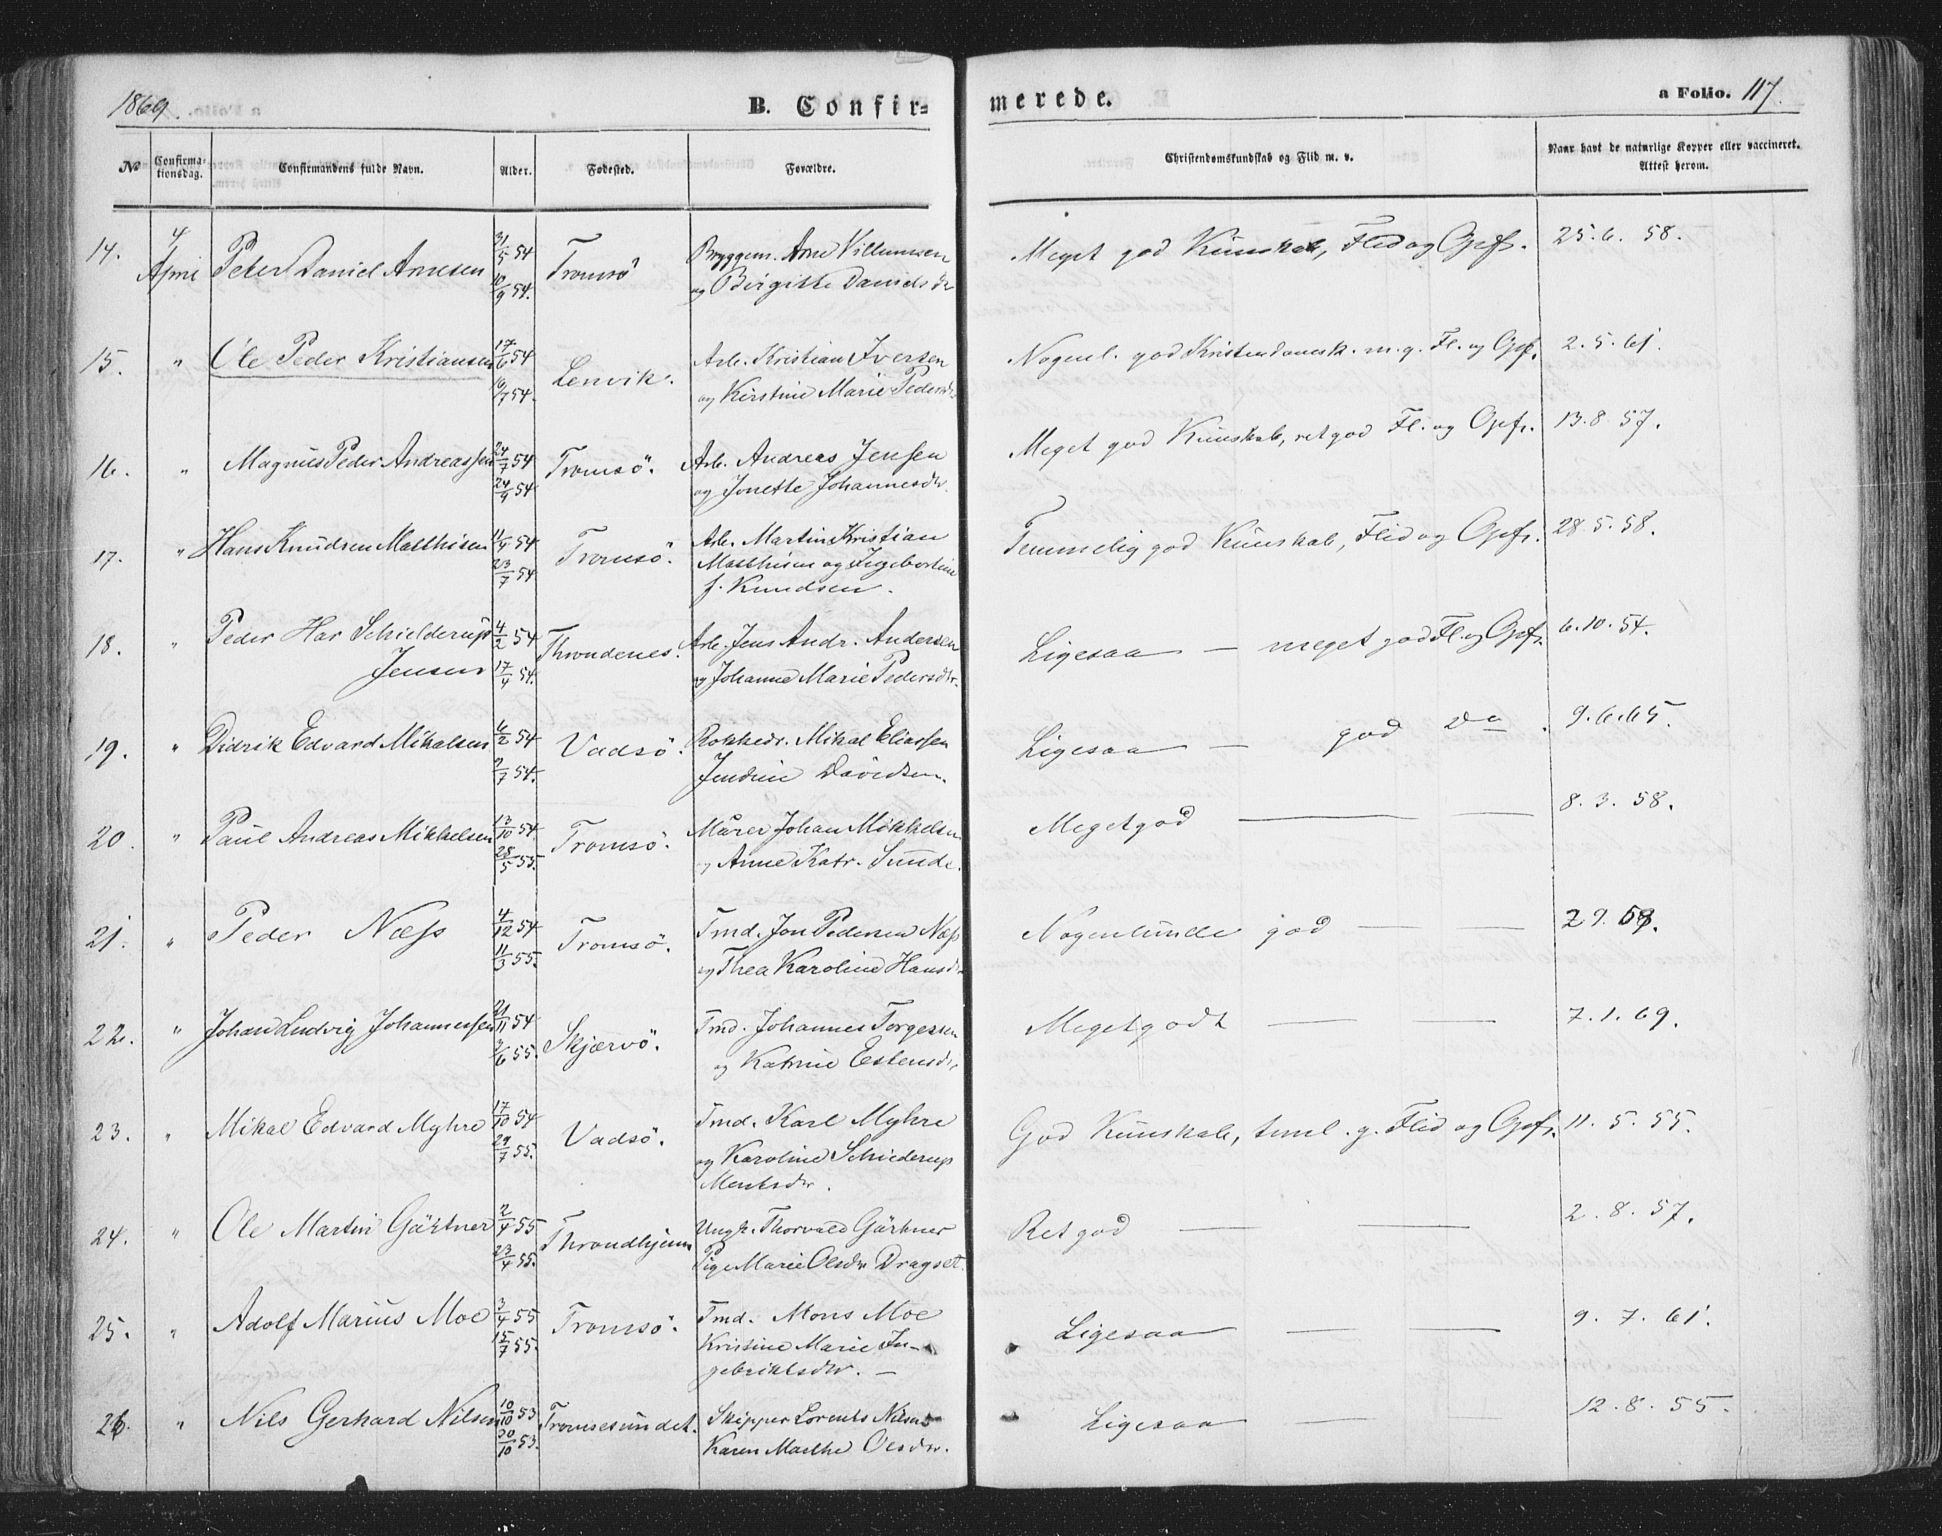 1869.
B. Confir-
merede.
a Folio. 117.
No
Confirma-
tionsdag.
Confirmandens fulde Navn.
Alder.
Fødested.
Forældre.
Christendomskundskab og Flid m. v.
Naar havt de naturlige Kopper eller vaccineret.
Attest herom.
14. 4 April Peter Daniel Arnesen 31/5 54 10/9 54. Tromsö Bryggem. Arne Villumsen
og Birgitte Daniels dr
Meget god Kunskab, Flid og Opf. 25.6.58.
15. " Ole Peder Kristiansen 17/6 54 16/7 54. Lenvik. Arb. Kristian Iversen
og Kirstine Marie Pedersdr
Nogenl. god Kristendomsk. m. g. Fl. og Opf. 2.5.61.
16. " Magnus Peder Andreassen 24/7 54 24/9 54 Tromsö. Arb. Andreas Jensen
og Jonette Johannesdr.
Meget god Kunskab, ret god Fl. og Opf. 13.8.57.
17. " Hans Knudsen Matthisen 11/4 54 23/7 54 Tromsö. Arb. Martin Kristian
Matthisen og Ingebortine
f. Knudsen.
Temmelig god Kunskab, Flid og Opf. 28.5.58.
18. " Peder Har Schielderup
Jensen 4/2 54 17/4 54. Throndenes. Arb. Jens Andr. Andersen
og Johanne Marie Pedersdr.
Ligesaa — meget god Fl. og Opf. 6.10.54.
19. " Didrik Edvard Mikalsen 6/2 54 2/7 54. Vadsö. Rokkedr. Mikal Eliassen
Jendine Davidsen.
Ligesaa — god do. 9.6.65.
20. " Paul Andreas Mikkelsen 13/10 54. 28/5 55. Tromsö. Murer Johan Mikkelsen
og Anne Katr. Sunde.
Meget god — — 8.3.58.
21. " Peder Næss 4/12 54 11/3 55. Tromsö. Tmd. Jon Pedersen Næss
og Thea Karoline Hansdr
Nogenlunde god — — 29.
22. " Johan Ludvig Johannessen 21/11 54 3/6 55. Skjærvö. Tmd. Johannes Torgersen
og Katrine Estensdr.
Meget godt — — 7.1.69.
23. " Mikal Edvard Myhre 17/10 54 29/7 55. Vadsö. Tmd. Karl Myhre
og Karoline Schiederup
Mentsdr.
God Kunskab, teml. g. Flid og Opf. 11.5.55.
24. " Ole Martin Gärtner 2/4 55 23/4 55. Throndhjem Ungk. Thorvald Gärtner
Pige Marie Olsdr Dragset.
Ret god — — 2.8.57.
25. " Adolf Marius Moe 3/4 55 15/7 55. Tromsö. Tmd. Mons Moe
Kristine Marie In-
gebriktsdr. —
Ligesaa — — 9.7.61.
26. " Nils Gerhard Nilsen 10/10 53 30/10 53. Tromsesundet. Skipper Lorents Nilsen
Karen Marthe Olsdr.
Ligesaa — — 12.8.55.